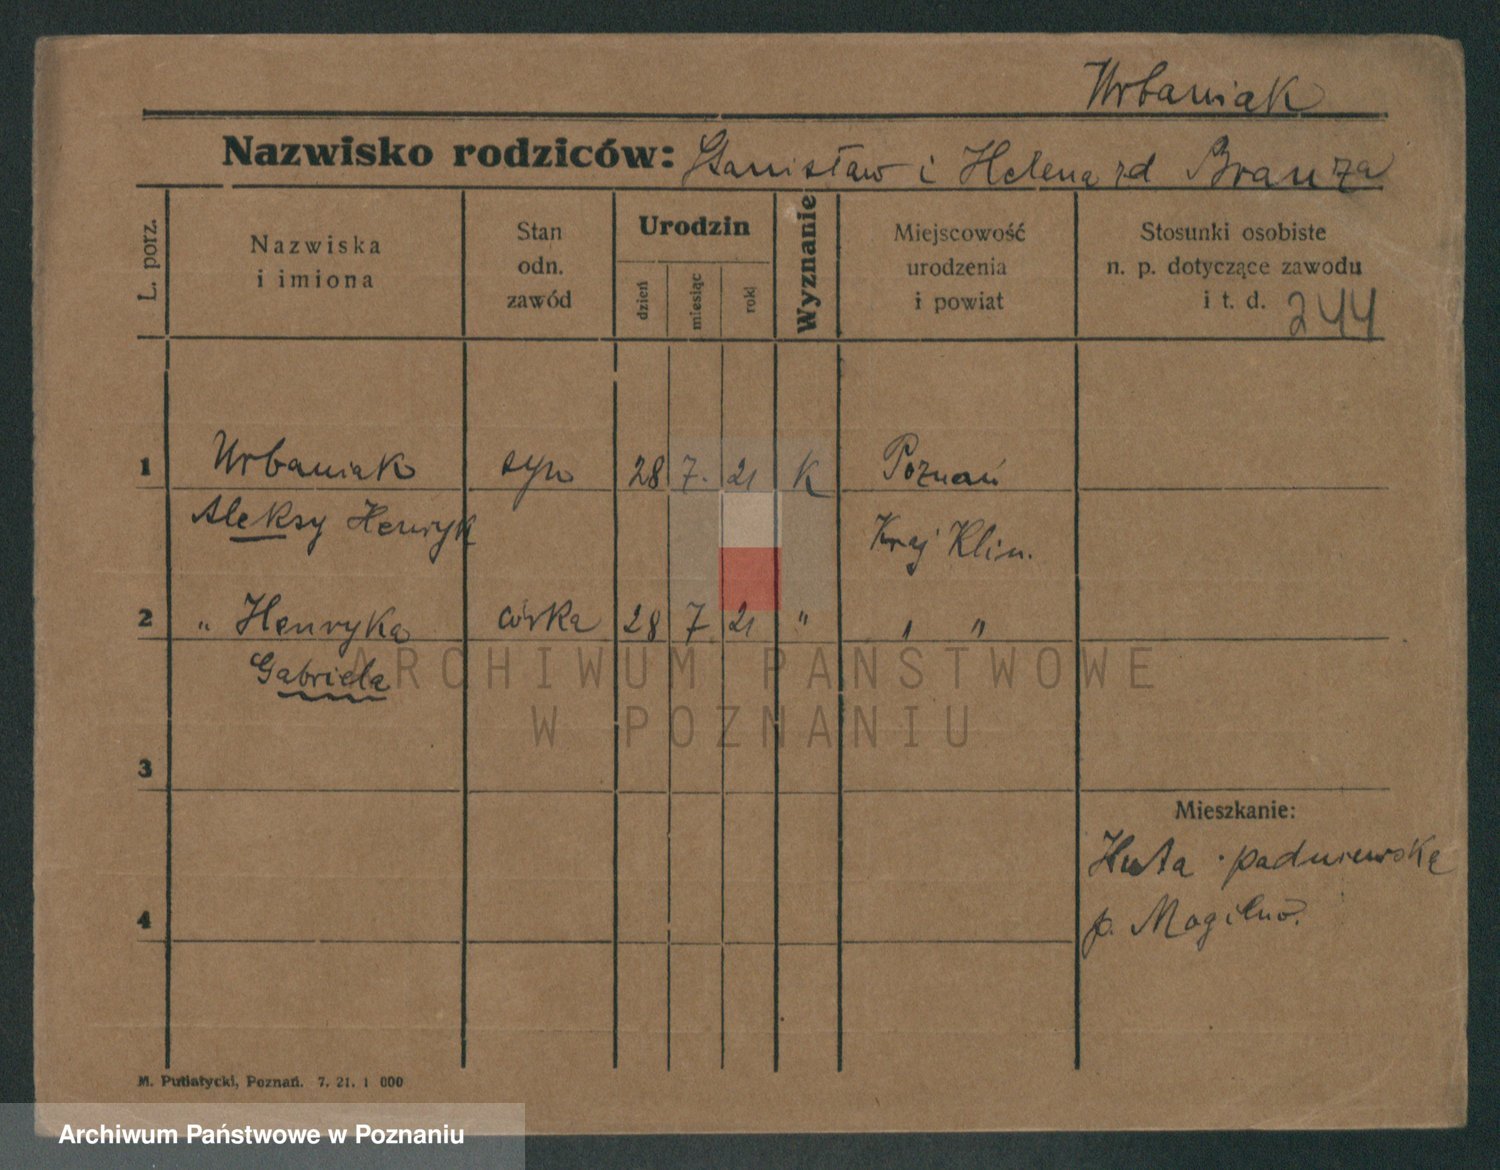 Urbaniak
Nazwisko rodziców: Stanisław i Helena rd Brauza
L. porz.
Nazwiska
i imiona
Stan
odn.
zawód
Urodzin
dzień
miesiąc
rok
Wyznanie
Miejscowość
urodzenia
i powiat
Stosunki osobiste
n. p. dotyczące zawodu
i t. d. 244
1 Urbaniak syn 28 7. 21 K Poznań
Aleksy Henryk Kraj Klin.
2 " Henryka córka 28 7. 21 " " "
Gabriela
3
Mieszkanie:
Huta padniewska
4
p. Mogilno.
M. Putiatycki, Poznań. 7. 21. 1 000
ARCHIWUM PAŃSTWOWE
W POZNANIU
Archiwum Państwowe w Poznaniu